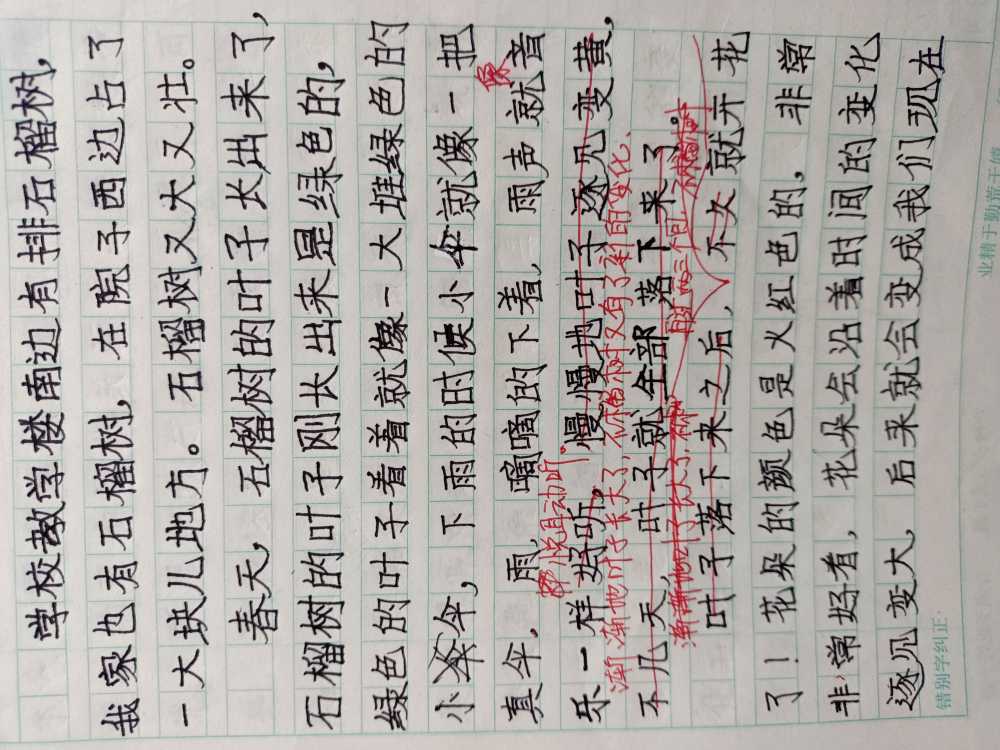 学校教学楼南边有排石榴树，
我家也有石榴树，在院子西边占了
一大块儿地方。石榴树又大又壮。
春天，石榴树的叶子长出来了，
石榴树的叶子刚长出来是绿色的，
绿色的叶子看着就像一大堆绿色的
小伞，下雨的时便小伞就像一把
真伞。雨，嘀嘀的下着，雨声就音
像
乐一样好听。慢慢地叶子逐见变黄，
悦耳动听。
渐渐地叶子长大了，石榴树又有了新的变化、
不几天，叶子就全部落下来了。
渐渐地叶子长大了，
叶子落下来之后，不久就开花
了！花朵的颜色是火红色的，非常
非常好看，花朵会沿着时间的变化
逐见变大，后来就会变成我们现在
错别字纠正
业精于勤荒于